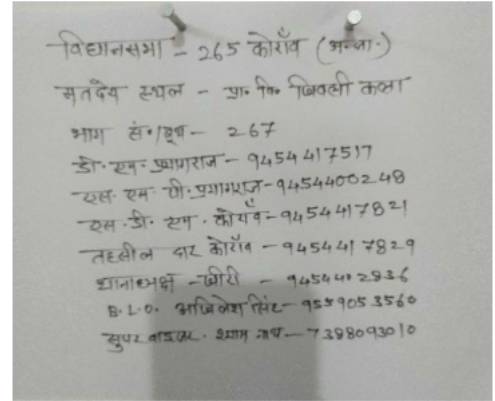 विधानसभा - 265 कोराँव (अ०जा०)
मतदेय स्थल - प्रा० वि० खिवली कला
भाग सं०/बूथ - 267
डी० एम० प्रयागराज - 9454417517
एस० एस० पी० प्रयागराज - 9454400248
एस० डी० एम० कोराँव - 9454417821
तहसील दार कोराँव - 9454417829
थानाध्यक्ष - खीरी - 9454402836
B.L.O. अखिलेश सिंह - 9559053560
सुपरवाइजर० श्याम नाथ - 7398093010